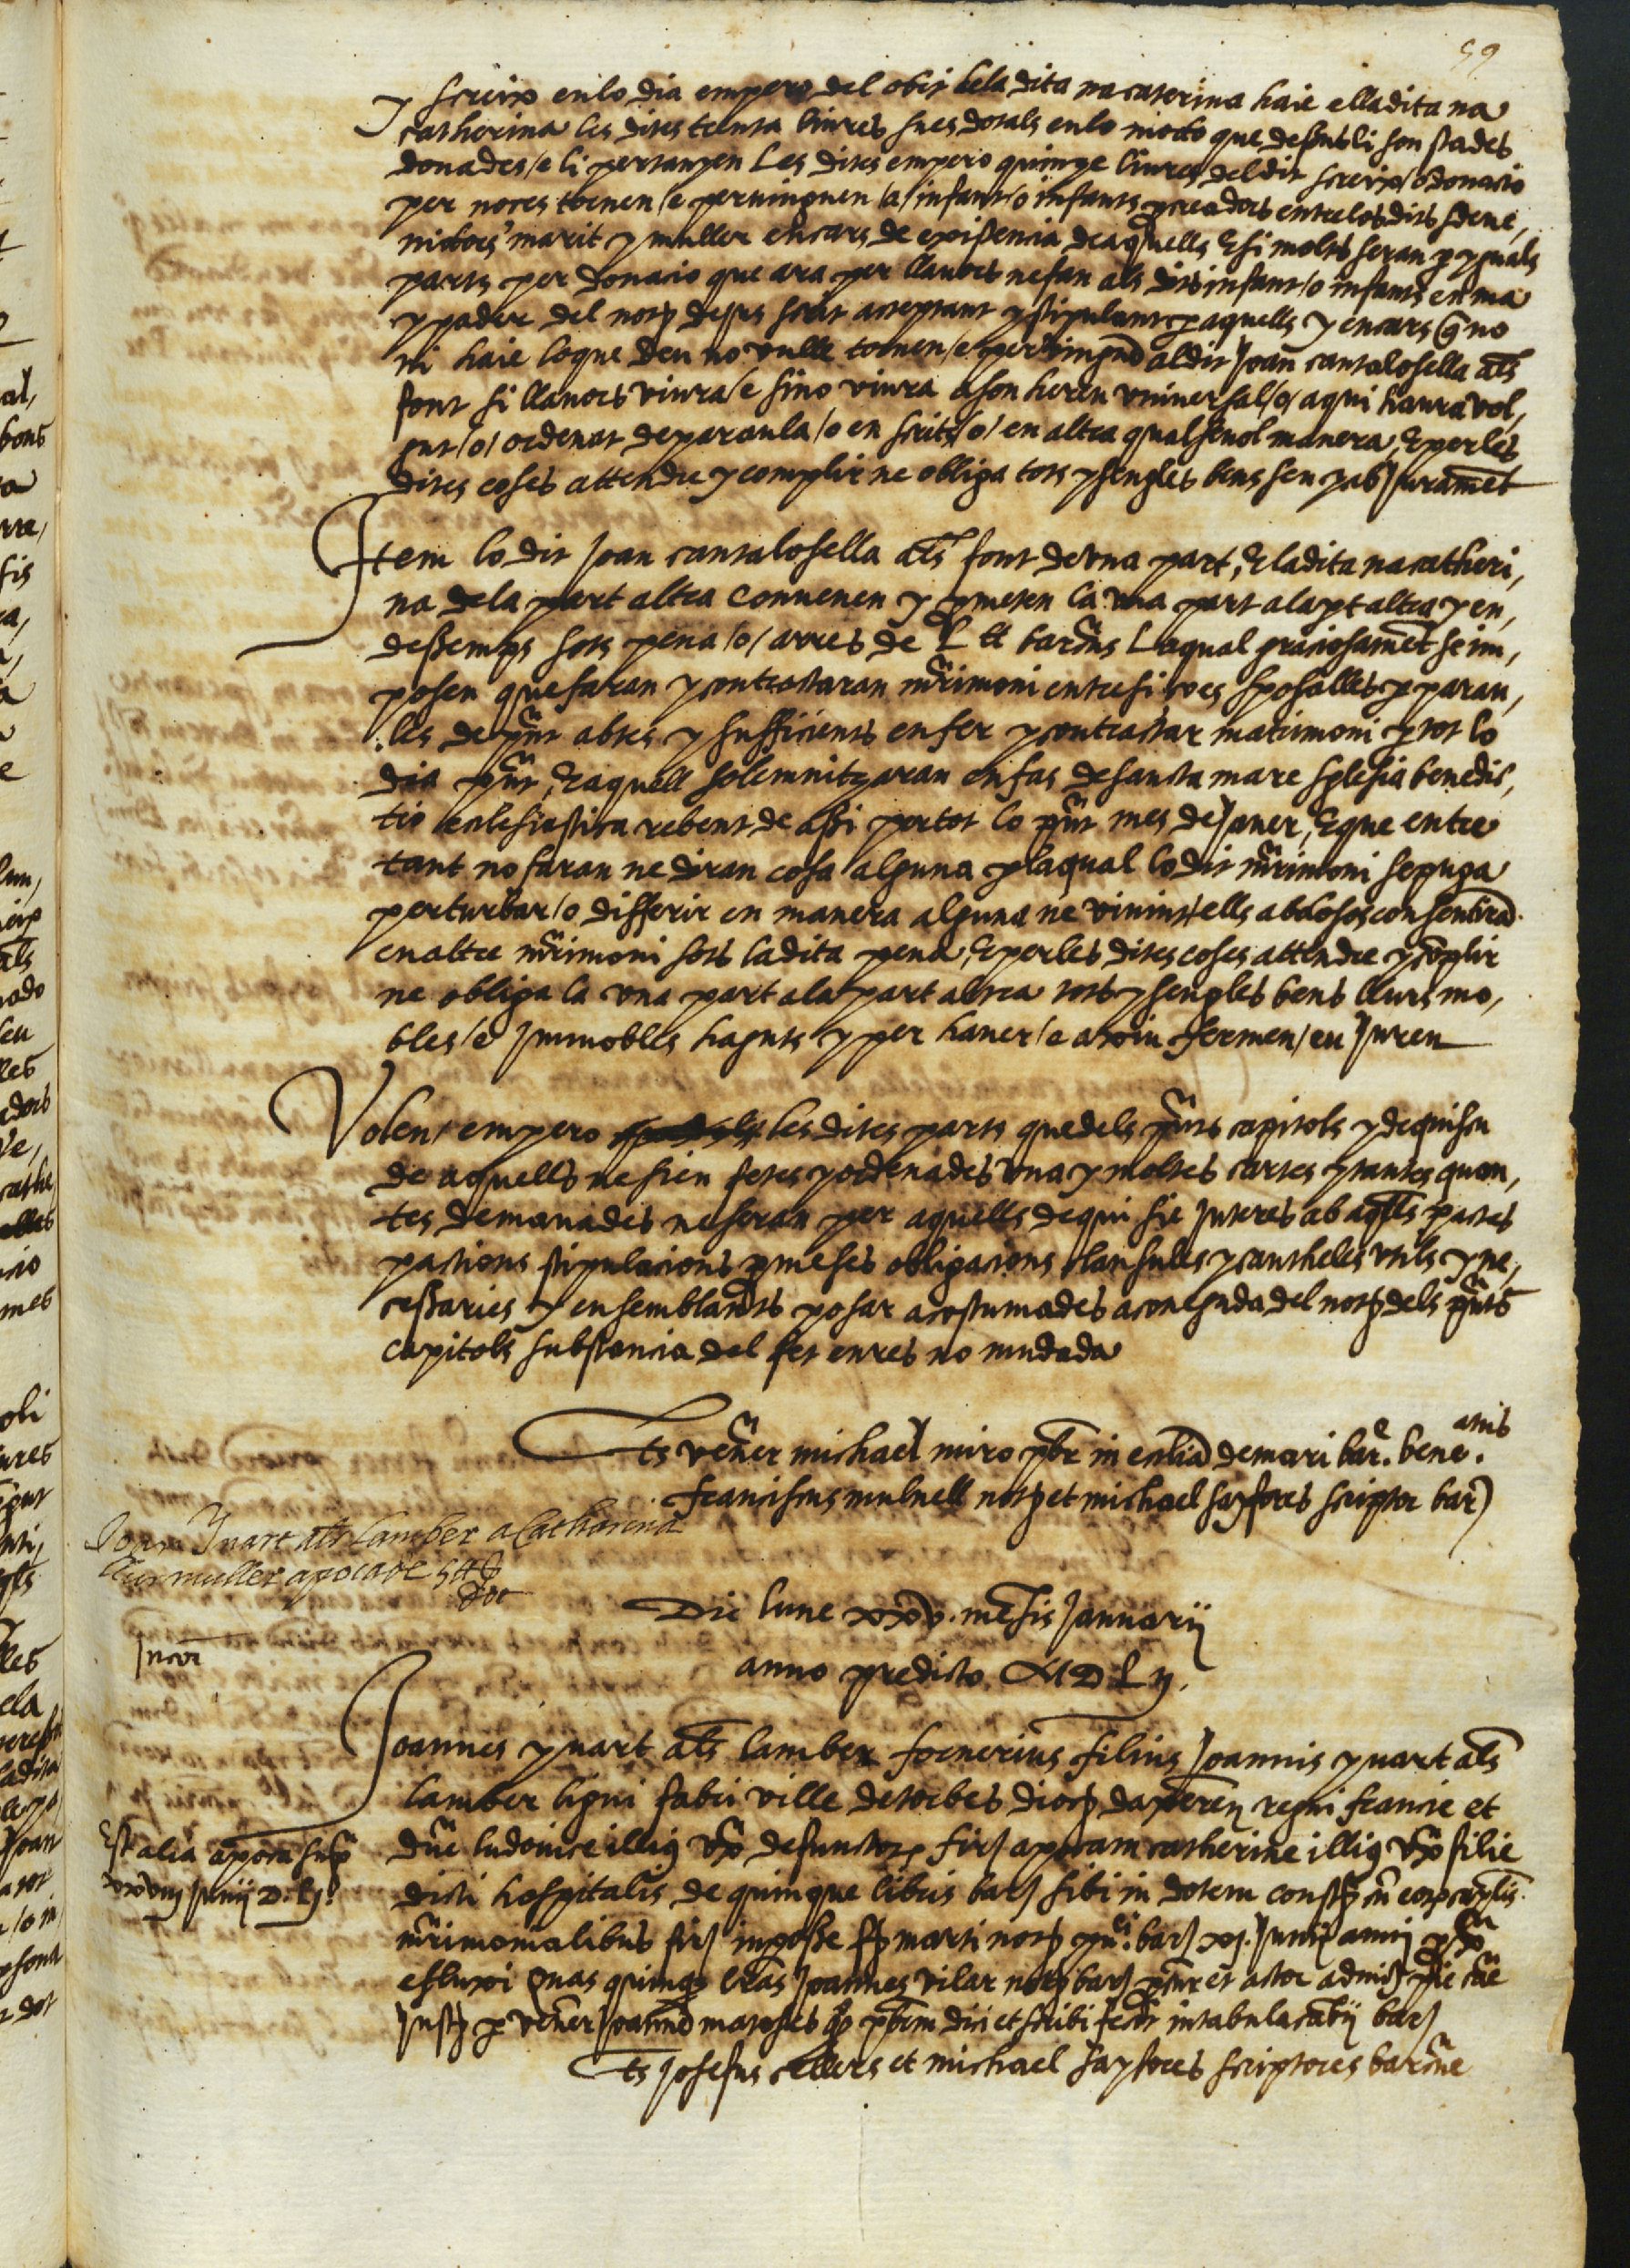 59
y screix en lo dia empero del obit de la dita na caterina haie ella dita na
catherina les dites trenta liures sues dotals en lo modo que desus li son stades
donades /e li pertanyen Les dites empero quinze liures del dit screix /o donacio
per noces tornen /e peruinguen /a/ infant /o infants pcreadors entre los dits sdeue,
nidors marit y muller en cars de existencia de aquells E si molts seran p yguals
parts per donacio que ara per llauors ne fan als dits infant /o infants en ma
y poder del not desus scrit acceptant y stipulant p aquells y en cars q no
ni haie lo que deu no vulle tornen /e peruinguē al dit Joan cantalosella als
font si llauors viura /e si no viura a son hereu vniuersal /o/ a qui haura vol,
gut /o/ ordenat de paraula /o en scrits /o/ en altra qualseuol manera, E per les
dites coses attendre y complir ne obliga tots y sengles bens seus y ab Juramēt
Item lo dit Joan cantalosella als font de vna part, E la dita na catheri,
na de la part altra Conuenen y pmeten la vna part a la pt altra y en,
dessemps sots pena /o/ arres de L ll barns La qual graciosamēt se im,
posen que faran y contractaran mrimoni entre si co es sposalles p parau,
les de pnt abtes y sufficients en fer y contractar matrimoni p tot lo
dia pnt, E aquell solemnitzaran en fas de sancta mare sglesia benedic,
tio eclesiastica rebent de assi per tot lo pnt mes de Janer, E que entre
tant no faran ne diran cosa alguna p la qual lo dit mrimoni se puga
perturbar /o differir en manera alguna ne viuint ells abdosos consentirā
en altre mrimoni sots la dita pena, E per les dites coses attendre y cōplir
ne obliga la vna part a la part altra tots y sengles bens llurs mo,
bles /e Jmmobles haguts y per hauer /e axi u fermen /e u Juren
Volent empero les dites parts que dels pnts capitols y de quiscu
de aquells ne sien fetes y ordenades vna y moltes cartes y tantes quan,
tes demanades ne seran per aquells de qui sie Interes ab aqlls pactes
pactions stipulacions pmeses obligacions clausules y cautheles vtils y ne,
cessaries y en semblants posar acostumades a coneguda del not dels pnts
capitols substancia del fet en res no mudada
Ts vener michael miro pbr in ecclia de mari bar. bene.atus
franciscus mulnell not et michael saysores scriptor bar
Joan Juart als Lamber a Catharina
sa muller apoca de 5 ll
dot
Die lune xxv. mēsis Januarij
anno predicto MDLij.
Jncor
Joannes yuart als lamber fornerius filius Joannis yuart als
lamber ligni fabri ville de torbes dioc regni francie et
dne ludouice illi vx defunctor fir apocam catherine illi vx filie
Est alia apoca sup
Junij D. Lij.
dicti hospitalis de quinque libris bar sibi in dotem constit in eor caplis
mrimonialibus fir in posse marti not bar xj. Junij anni
effluxi Quas quinq lras Joannes vilar not bar et actor
Just p vener matoses pbrm dici et scribi fecit in tabula cabij bar
Ts Josefus cellers et michael saysores scriptores barne